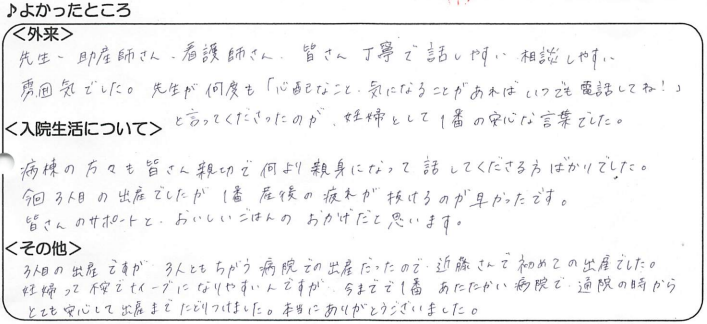 ♪よかったところ
<外来>
先生、助産師さん、看護師さん、皆さん丁寧で話しやすい、相談しやすい
雰囲気でした。先生が何度も「心配なこと、気になることがあればいつでも電話してね!」
と言ってくださったのが、妊婦として1番の安心な言葉でした。
<入院生活について>
病棟の方々も皆さん親切で何より親身になって話してくださる方ばかりでした。
今回3人目の出産でしたが1番産後の疲れが抜けるのが早かったです。
皆さんのサポートと、おいしいごはんのおかげだと思います。
<その他>
3人目の出産ですが、3人ともちがう病院での出産だったので、近藤さんで初めての出産でした。
妊婦って不安でナイーブになりやすいんですが、今までで1番あたたかい病院で、通院の時から
とても安心して出産までたどりつけました。本当にありがとうございました。